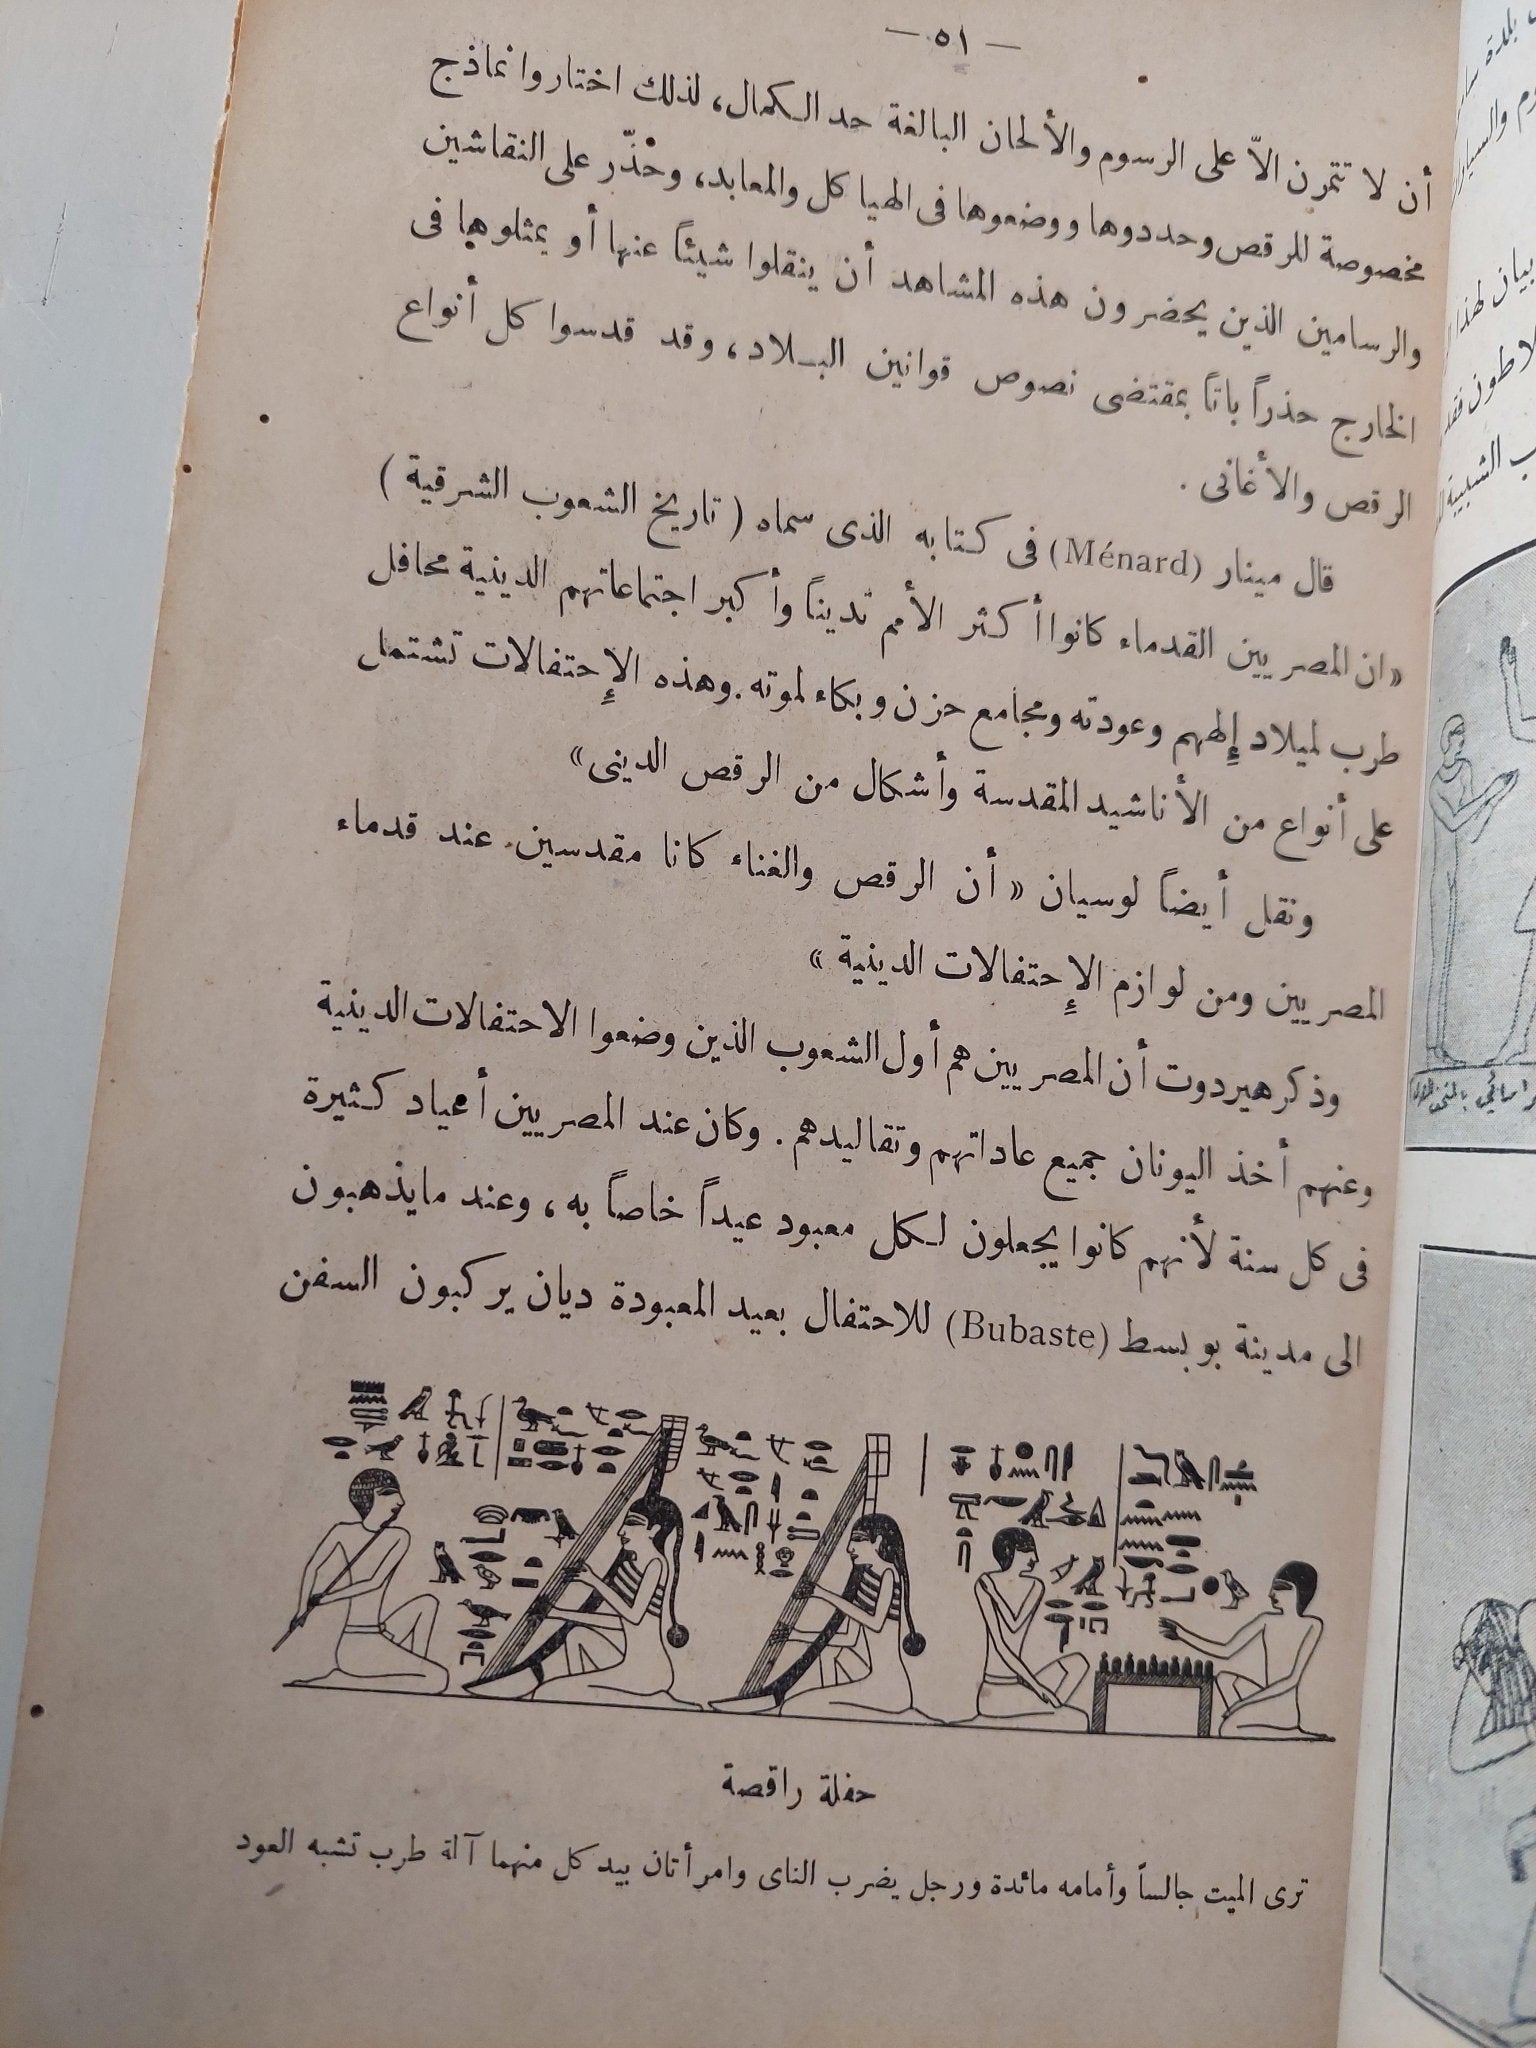 — ٥١ —
أن لا تتمرن الاّ على الرسوم والألحان البالغة حد الكمال، لذلك اختاروا نماذج
مخصوصة للرقص وحددوها ووضعوها فى الهياكل والمعابد، وحُذّر على النقاشين
والرسامين الذين يحضرون هذه المشاهد أن ينقلوا شيئاً عنها أو يمثلوها فى
الخارج حذراً باتاً بمقتضى نصوص قوانين البلاد، وقد قدسوا كل أنواع
الرقص والأغانى.
قال مينار (Ménard) فى كتابه الذى سماه (تاريخ الشعوب الشرقية)
«ان المصريين القدماء كانوا أكثر الأمم تديناً وأكبر اجتماعاتهم الدينية محافل
طرب لميلاد إلههم وعودته ومجامع حزن وبكاء لموته. وهذه الإحتفالات تشتمل
على أنواع من الأناشيد المقدسة وأشكال من الرقص الدينى»
ونقل أيضاً لوسيان «أن الرقص والغناء كانا مقدسين عند قدماء
المصريين ومن لوازم الإحتفالات الدينية»
وذكر هيردوت أن المصريين هم أول الشعوب الذين وضعوا الاحتفالات الدينية
وعنهم أخذ اليونان جميع عاداتهم وتقاليدهم. وكان عند المصريين أعياد كثيرة
فى كل سنة لأنهم كانوا يجعلون لكل معبود عيداً خاصاً به، وعند مايذهبون
الى مدينة بوبسط (Bubaste) للاحتفال بعيد المعبودة ديان يركبون السفن
حفلة راقصة
ترى الميت جالساً وأمامه مائدة ورجل يضرب الناى وامرأتان بيد كل منهما آلة طرب تشبه العود